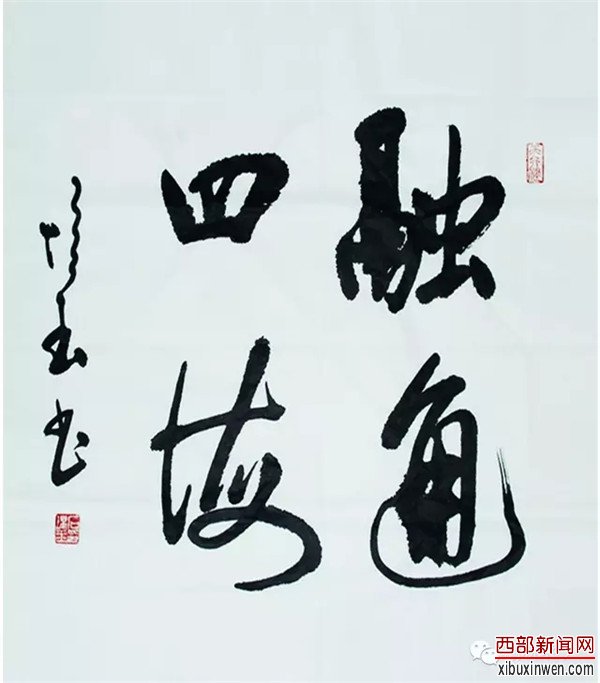 天行健
融通
四海
玉书
西部新闻网
xibuxinwen.com